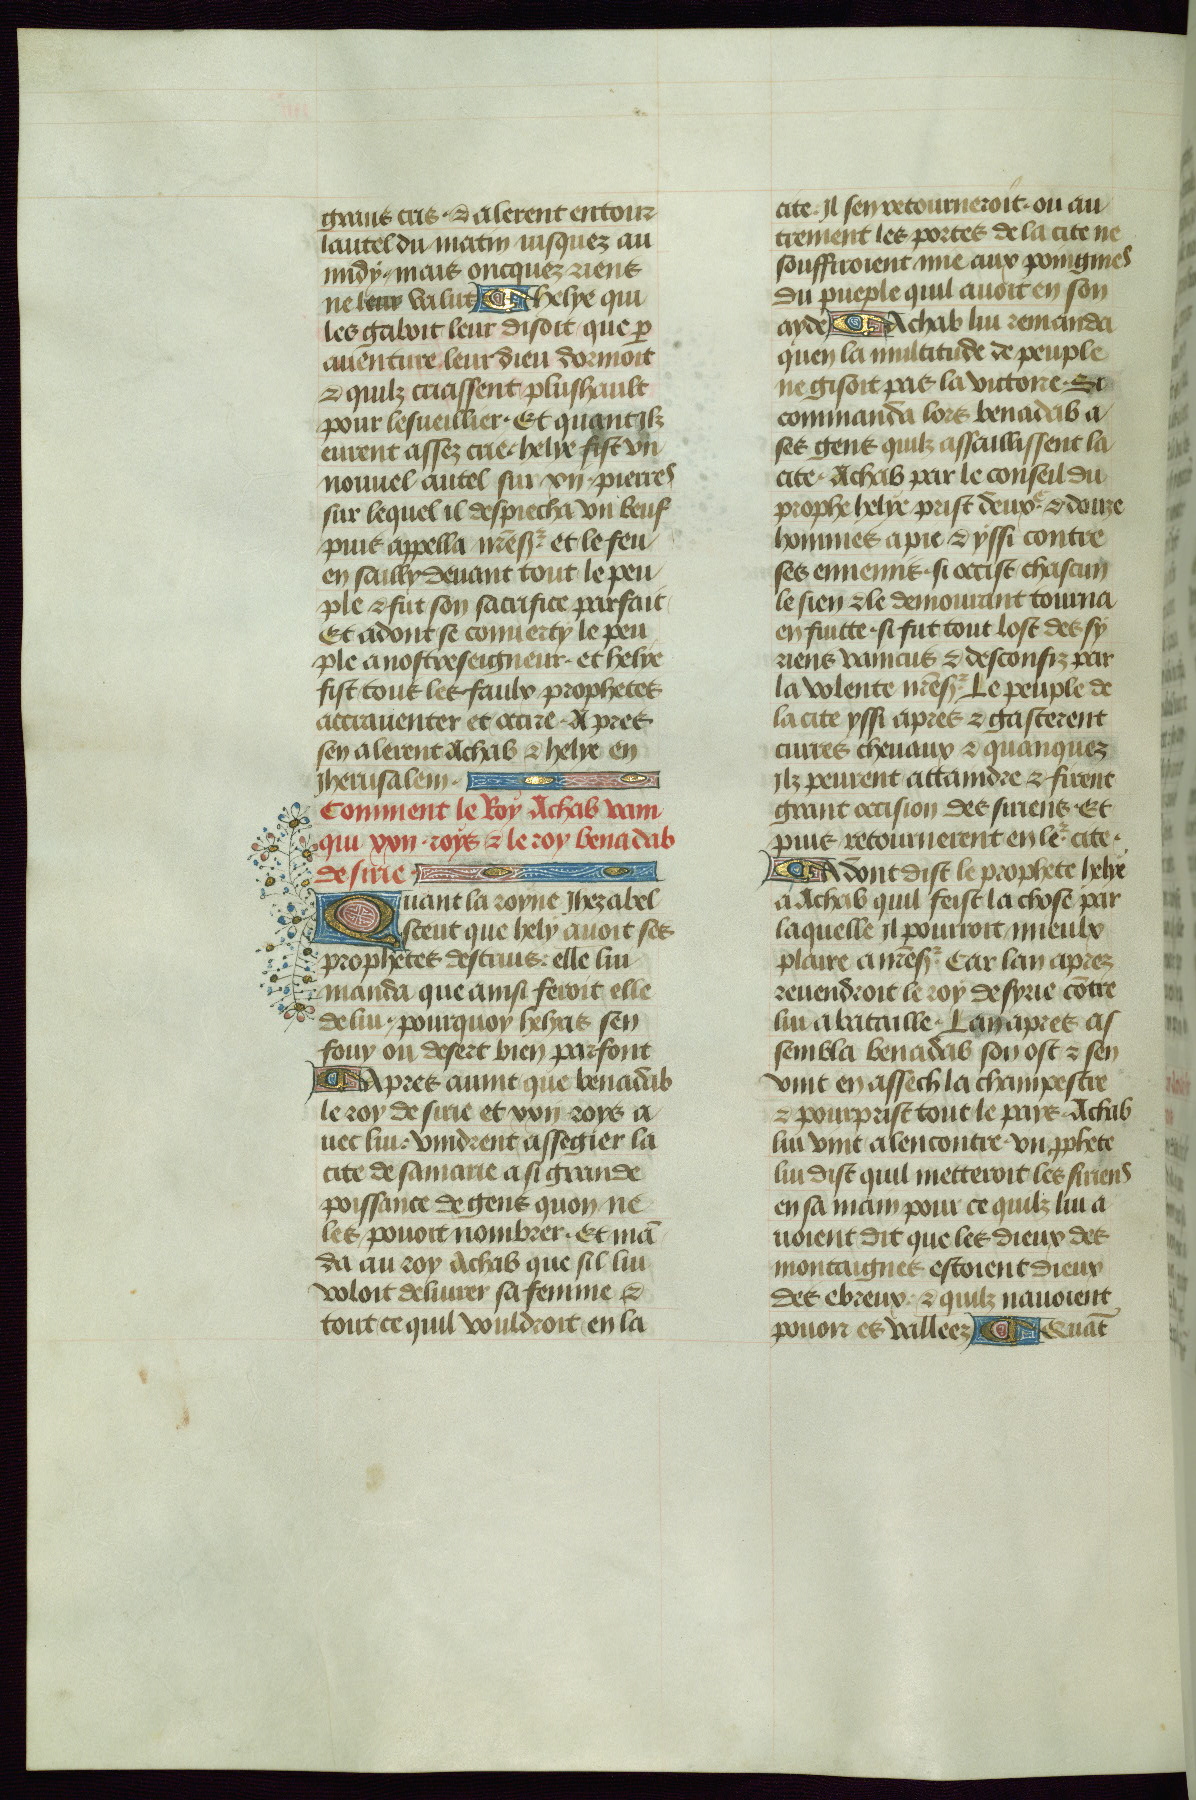 grans cris · & alerent entour
lautel du matin iusquez au
midy · mais oncquez riens
ne leur valut helye qui
les gaboit leur disoit que p̱
auenture leur dieu dormoit
& quilz criassent plus hault
pour lesueillier · Et quant ilz
eurent assez crie · helye fist vn
nouuel autel sur xii · pierres
sur lequel il despiecha vn beuf
puis appella nr̄e sr̄ · et le feu
en sailly deuant tout le peu
ple & fut son sacrifice parfait
Et adont se conuerty le peu
ple a nostre seigneur · et helye
fist tous les faulx prophetes
accrauenter et occire · Apres
sen alerent Achab & helye en
Jherusalem ·
Comment le Roy Achab vain
qui xxii · roys & le roy benadab
de sirie ·
Quant la royne Jhezabel
sceut que hely auoit ses
prophetes destruis : elle lui
manda que ainsi feroit elle
de lui · pourquoy helyas sen
fouy ou desert bien parfont
Apres auint que benadab
le roy de sirie et xxii · roys a
uec lui : vindrent assegier la
cite de samarie a si grande
poissance de gens quon ne
les pouoit nombrer · Et mā
da au roy Achab que sil lui
voloit deliurer sa femme &
tout ce quil vouldroit en la
cite · Jl sen retourneroit · ou au
trement les portes de la cite ne
souffiroient mie aux poingnies
du pueple quil auoit en son
ayde Achab lui remanda
quen la multitude de peuple
ne gisoit pas la victoire · Si
commanda lors benadab a
ses gens quilz assaillissent la
cite · Achab par le conseil du
prophe helye prist deux c & douze
hommes a pie & yssi contre
ses ennemis · si occist chascun
le sien & le demourant tourna
en fuitte · si fut tout lost des sy
riens vaincus & desconfiz par
la volente nr̄e sr̄ · Le peuple de
la cite yssi apres & gasterent
curres cheuaux & quanquez
ilz peurent attaindre & firent
grant occision des siriens · Et
puis retournerent en le r cite ·
Adont dist le prophete helye
a Achab quil feist la chose par
laquelle il pourroit mieulx
plaire a nr̄e sr̄ · Car lan aprez
reuendroit le roy de syrie cōtre
lui a bataille · Lan apres as
sembla benadab son ost & sen
vint en affech la champestre
& pourprist tout le pays · Achab
lui vint alencontre · vn pp̄hete
lui dist quil metteroit les siriens
en sa main pour ce quilz lui a
uoient dit que les dieux des
montaignes estoient dieux
des ebreux · & quilz nauoient
pouoir es valleez Quāt